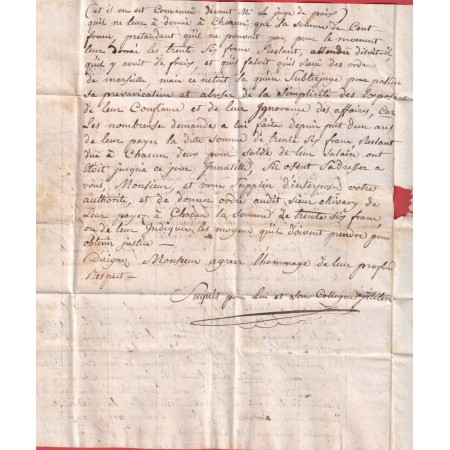 (et il en est Convenu devant Mr Le juge de paix)
qu'il ne leur a donné a Chacun que La Somme de Cent
francs, pretendant qu'il ne pouvoit pas pour le moment
leur donné les trente Six franc Restant, attendu disoit-il
qu'il y avoit de fraix et qu'il faloit qu'il Reçu des ordre
de marseille, mais ce n'etoit la qu'un Subterfuge pour pallier
Sa prevarication et abuser de La Simplicité des Exposants
de leur Confiance et de leur Ignorance des affaires, Car
Les nombreuse demandes a lui faites depuis près d'un ans
de leur payer la ditte Somme de trente Six franc Restant
due à Chacun deux pour Solde de leur Salaire ont
Etoit jusqu'a ce jour Inutille Ils osent S'adresser a
vous, Monsieur, et vous Supplier d'interposer votre
authorité, et de donner ordre audit Sieur
Leur payer à Chacun La Somme de trente Six franc
ou de leur Indiquer les moyens qu'ils doivent prendre pour
obtenir justice —
Daignez Monsieur agreer l'hommage de leur profond
Respect —
pour Lui et Son Collegue